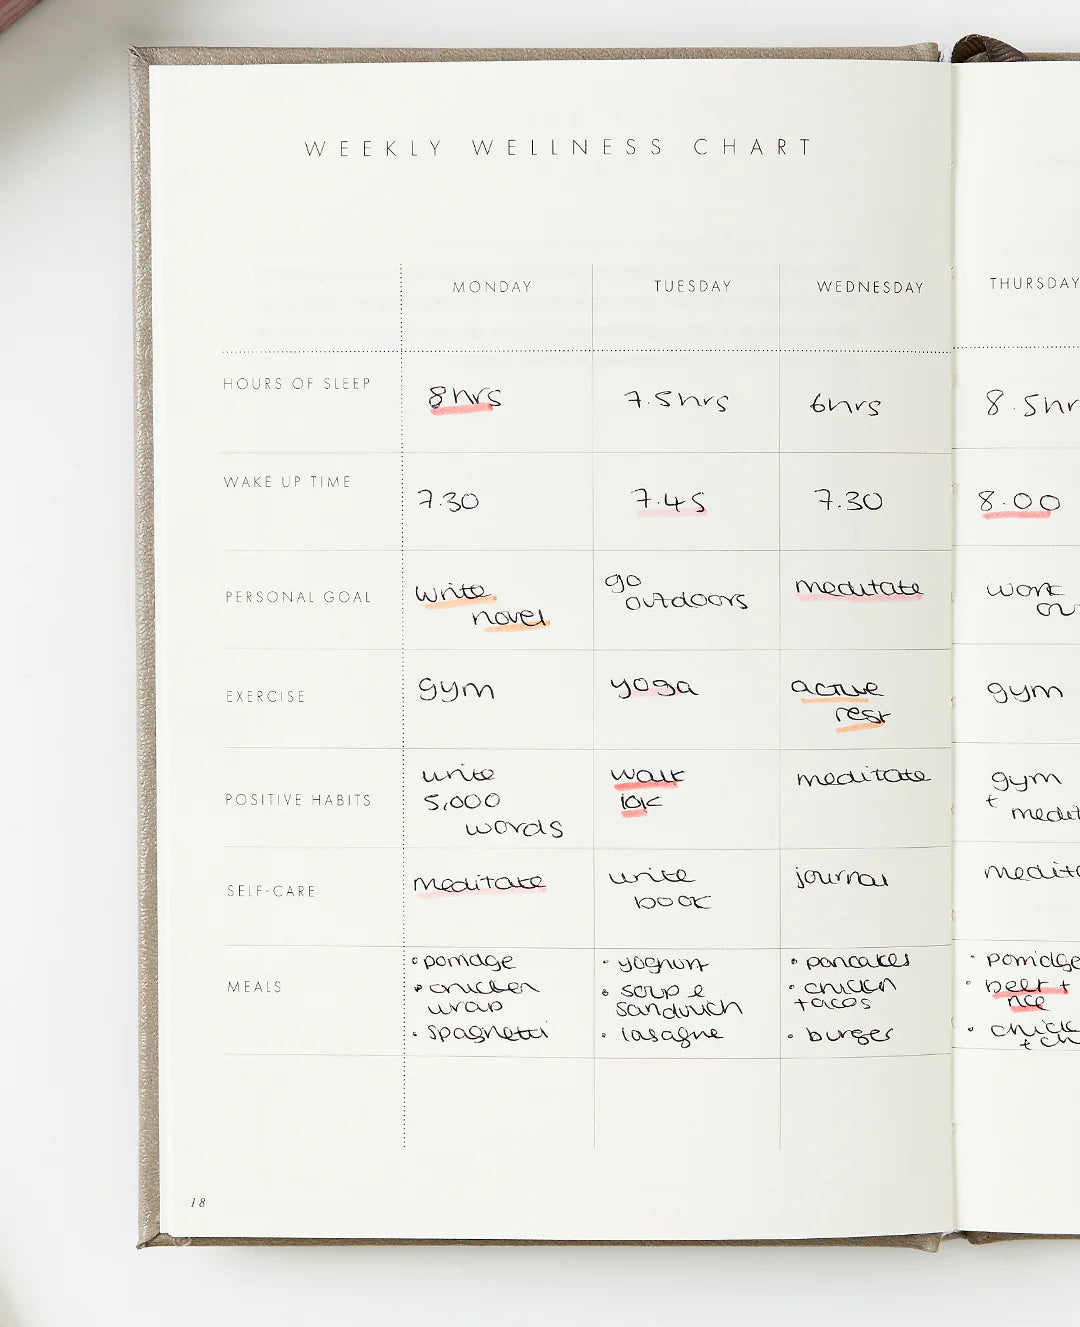 WEEKLY WELLNESS CHART
MONDAY TUESDAY WEDNESDAY THURSDAY
HOURS OF SLEEP 8hrs 7.5hrs 6hrs 8.5hr
WAKE UP TIME 7.30 7.45 7.30 8.00
PERSONAL GOAL write go meditate work
novel outdoors ou
EXERCISE gym yoga active gym
rest
write walk meditate gym
POSITIVE HABITS 5,000 10k + medit
words
SELF-CARE meditate write journal medita
book
• porridge • yoghurt • pancakes • porridge
MEALS • chicken • soup & • chicken • beef +
wrap sandwich tacos rice
• spaghetti • lasagne • burger • chick
+ ch
18